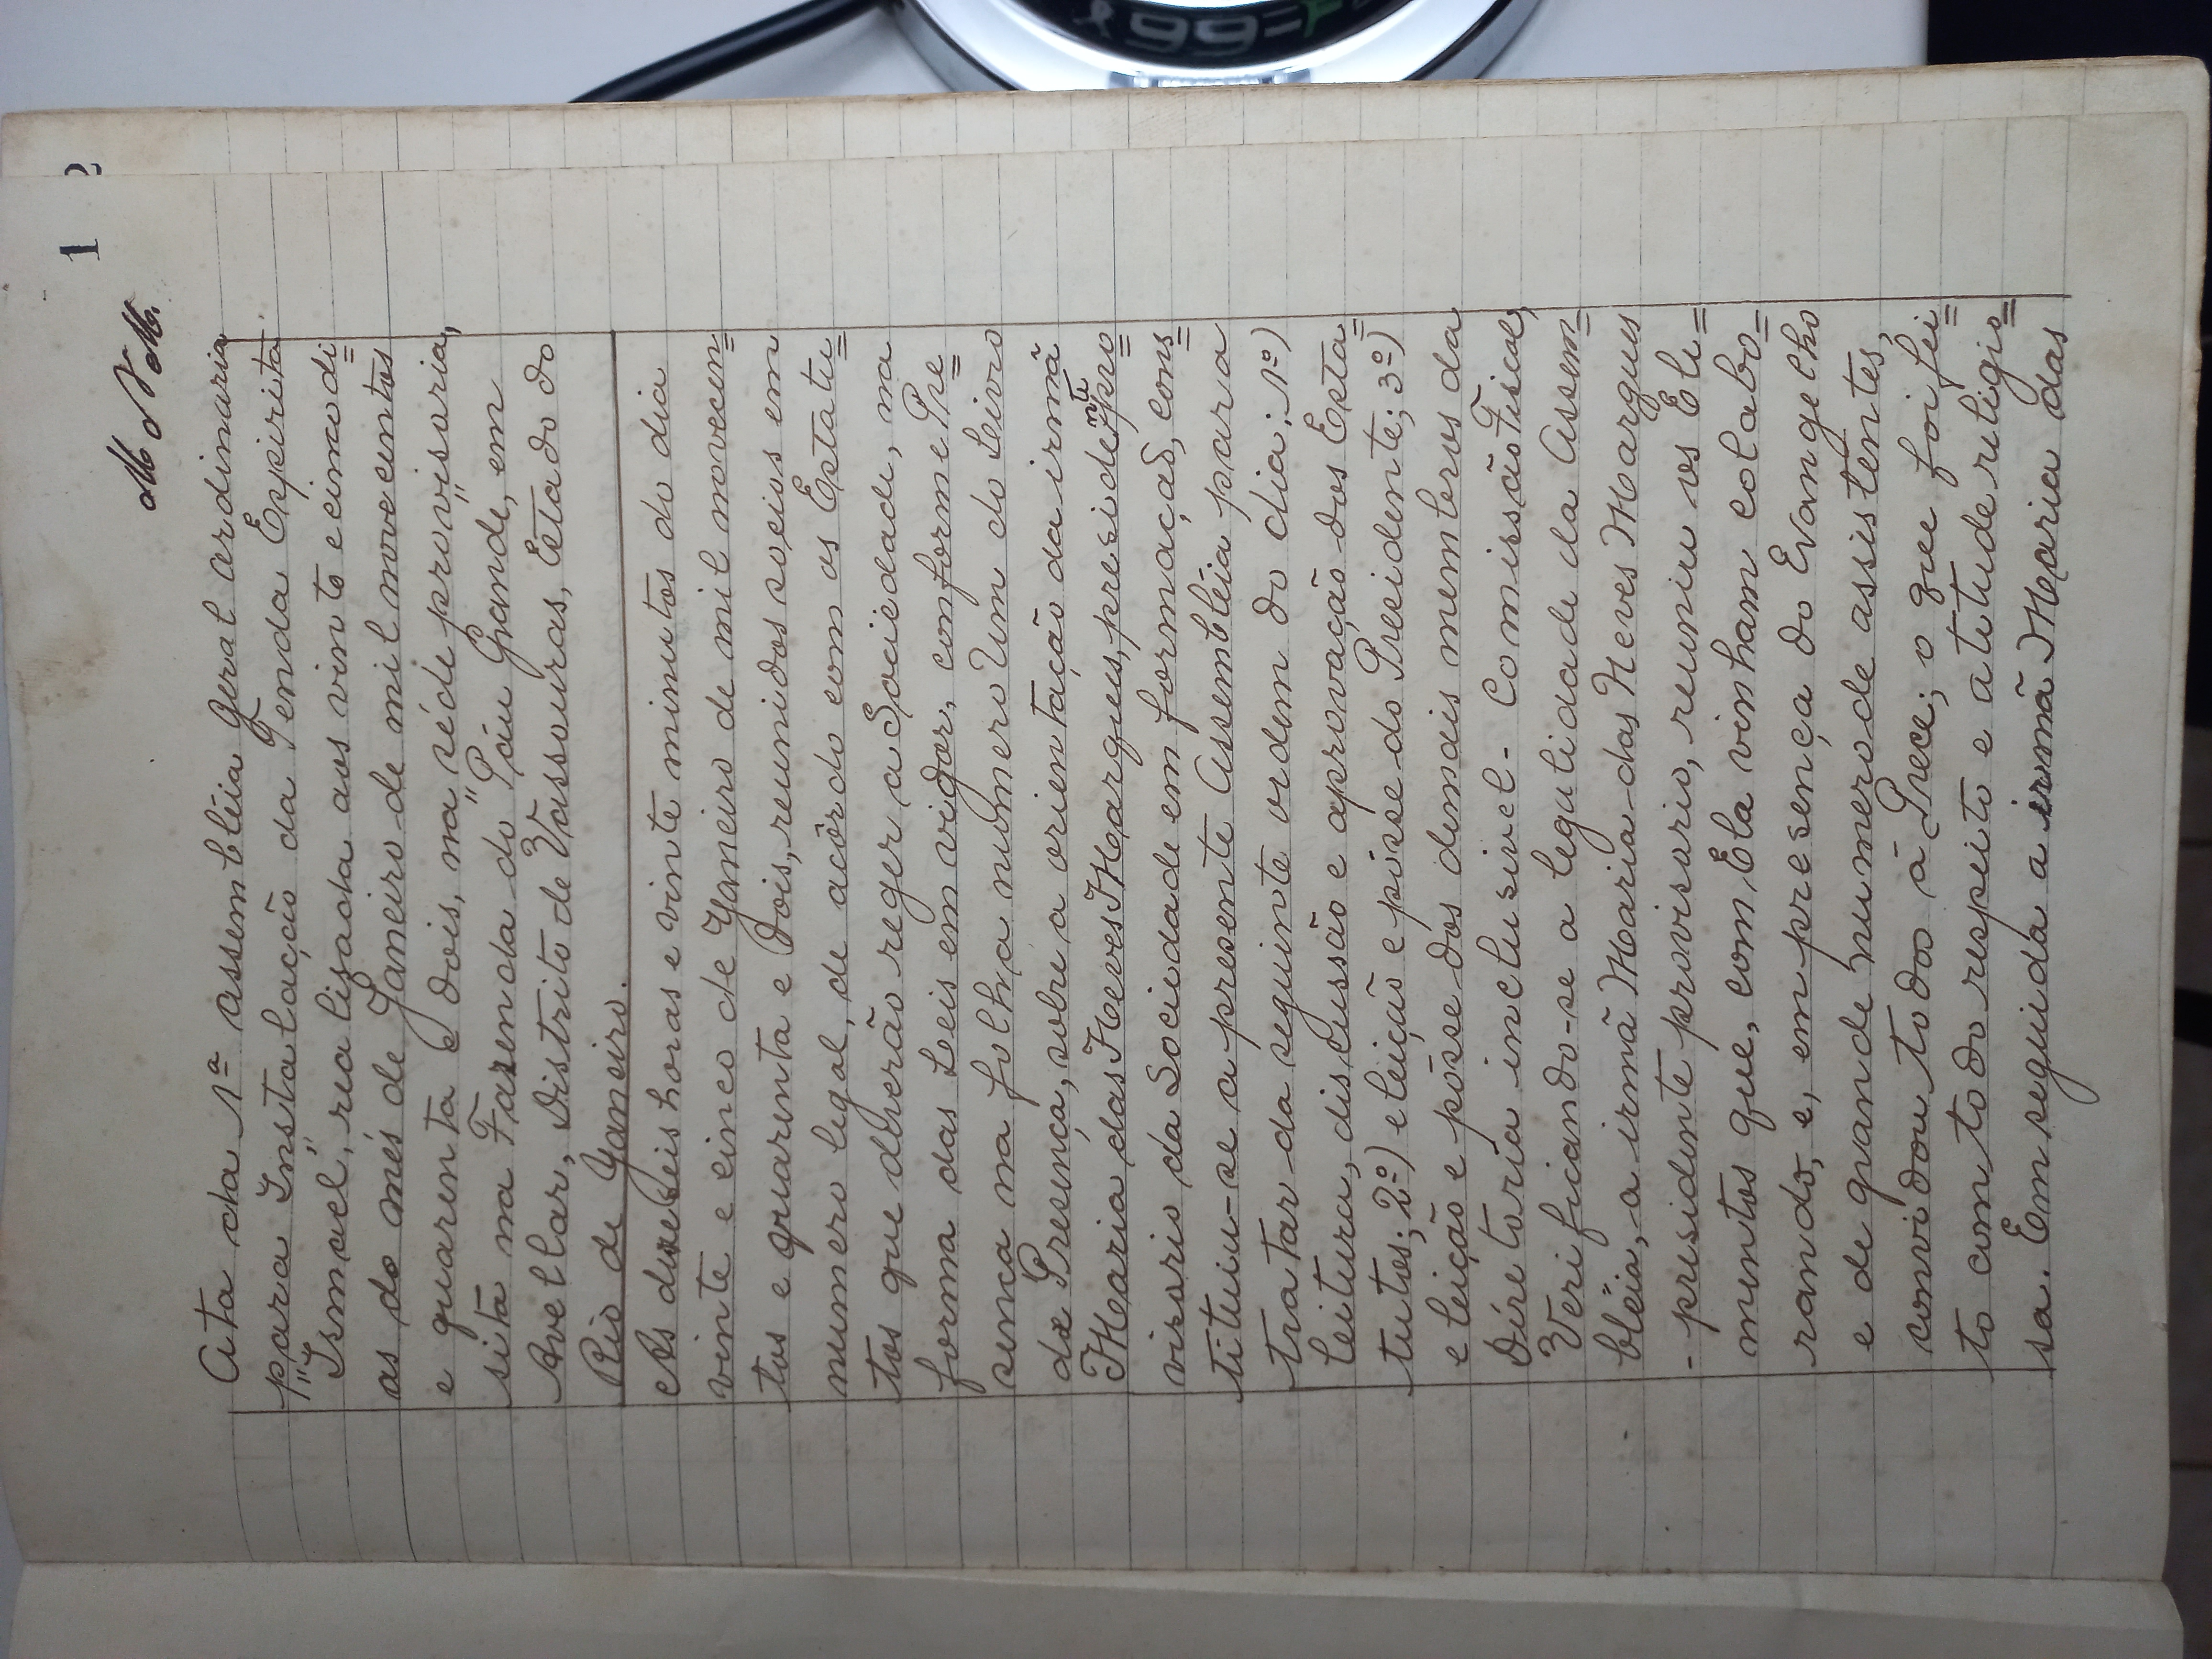 1
2
M N M.
Ata da 1ª assembléia geral ordinaria,
para Instalação da Tenda Espirita
"Ismael", realisada aos vinte e cinco di=
as do mês de Janeiro de mil novecentos
e quarenta e dois, na séde provisoria,
sita na Fazenda do "Páu Grande", em
Avellar, Distrito de Vassouras, Estado do
Rio de Janeiro.
As dezeseis horas e vinte minutos do dia
vinte e cinco de Janeiro de mil novecen=
tos e quarenta e dois, reunidos socios em
numero legal, de acôrdo com os Estatu=
tos que deverão reger a Sociedade, na
forma das Leis em vigor, conforme Pre=
sença na folha número Um do Livro
de Presença, sobre a orientação da irmã
Maria das Neves Marques, presidente pro=
visorio da Sociedade em formação, cons=
tituiu-se a presente Assembléia para
tratar da seguinte ordem do dia: 1º)
leitura, discussão e aprovação dos Esta=
tutos; 2º) eleição e pósse do Presidente; 3º)
eleição e pósse dos demais membros da
Diretoria inclusivel - Comissão Fiscal,
Verificando-se a legalidade da Assem=
bléia, a irmã Maria das Neves Marques
- presidente provisorio, reuniu os Ele=
mentos que, com Ela vinham colabo=
rando, e, em presença do Evangelho
e de grande numero de assistentes,
convidou todos á Prece; o que foi fei=
to com todo respeito e atitude religio=
sa. Em seguida a irmã Maria das